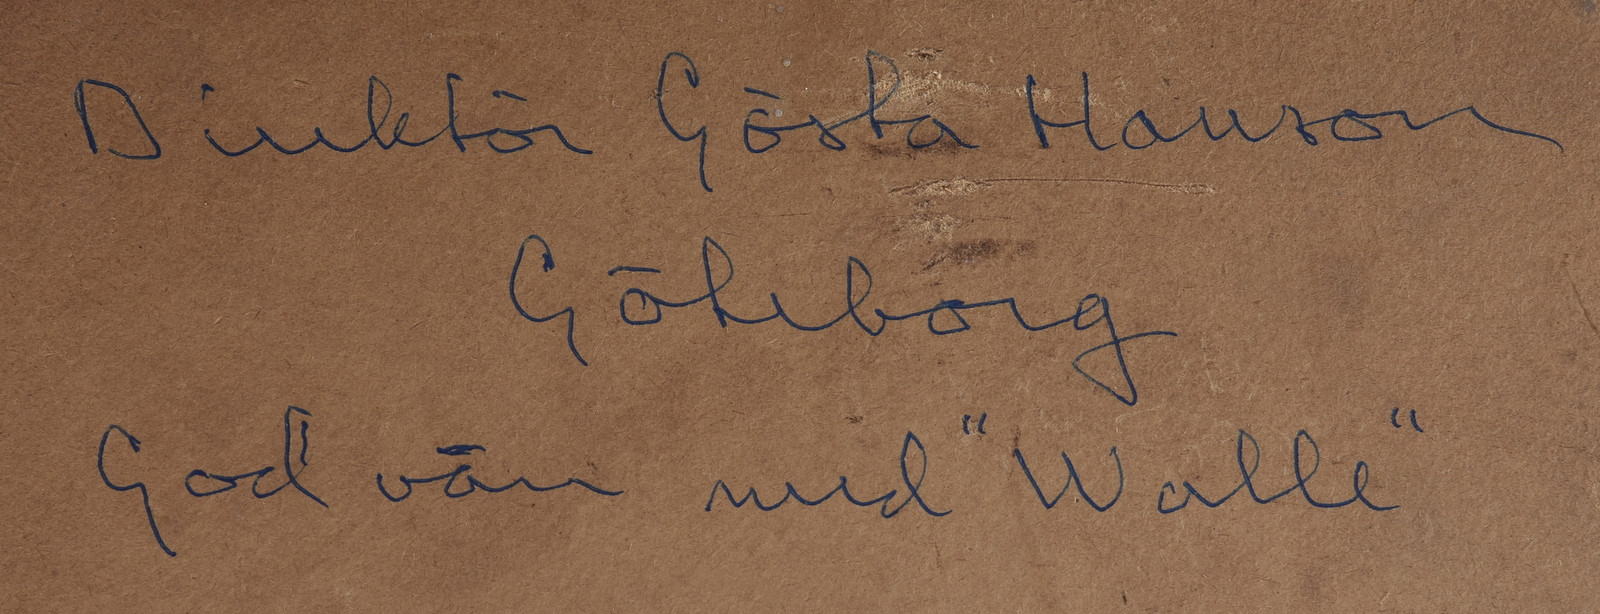 Direktör Gösta Hanson
Göteborg
God vän med "Walle"